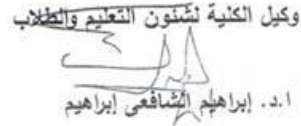 وكيل الكلية لشئون التعليم والطلاب
ا.د. إبراهيم الشافعى إبراهيم